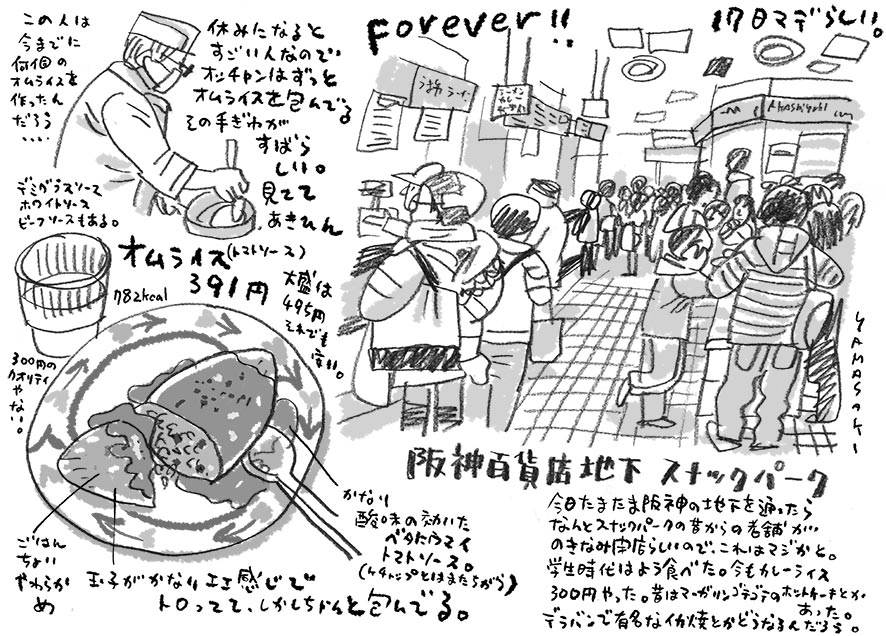 この人は
今までに
何個の
オムライスを
作ったん
だろう
...
休みになると
すごい人なので
オッチャンはずっと
オムライスを包んでる
その手ぎわが
すばら
しい。
見てて
あきひん
デミグラスソース
ホワイトソース
ビーフソースもある。
オムライス(トマトソース)
391円
782kcal
大盛は
495円
それでも
安い。
300円の
クオリティ
やない。
ごはん
ちょい
やわらか
め
玉子がかなりエエ感じで
トロってて、しかしちゃんと包んでる。
かなり
酸味の効いた
ベタにウマイ
トマトソース。
(ケチャップとはまたちがう)
Forever!!
17日マデらしい。
ラーメン
カレー
YAMASAKI
阪神百貨店地下 スナックパーク
今日たまたま阪神の地下を通ったら
なんとスナックパークの昔からの老舗が
のきなみ閉店らしいので、これはマジかと。
学生時代はよう食べた。今もカレーライス
300円やった。昔はマーガリンゴテゴテのホットケーキとか
あった。
デラバンで有名なイカ焼とかどうなるんだろう。